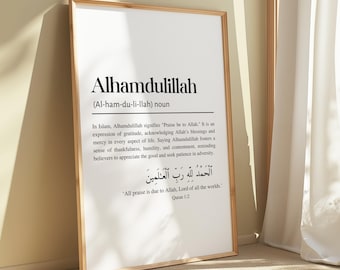 Alhamdulillah
(Al-ham-du-li-llah) noun
In Islam, Alhamdulillah signifies "Praise be to Allah." It is an
expression of gratitude, acknowledging Allah's blessings and
mercy in every aspect of life. Saying Alhamdulillah fosters a
sense of thankfulness, humility, and contentment, reminding
believers to appreciate the good and seek patience in adversity.
ٱلْحَمْدُ لِلَّهِ رَبِّ ٱلْعَـٰلَمِينَ
'All praise is due to Allah, Lord of all the worlds.'
Quran 1:2